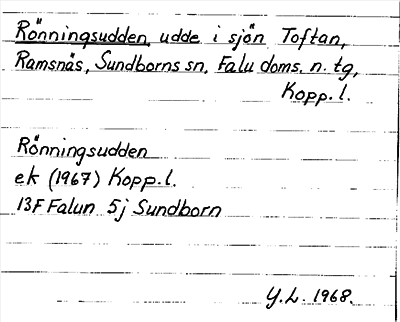 Rönningsudden, udde i sjön Toftan,
Ramsnäs, Sundborns sn, Falu doms. n. tg,
Kopp. l.
Rönningsudden
ek (1967) Kopp. l.
13F Falun 5j Sundborn
Y.L. 1968.